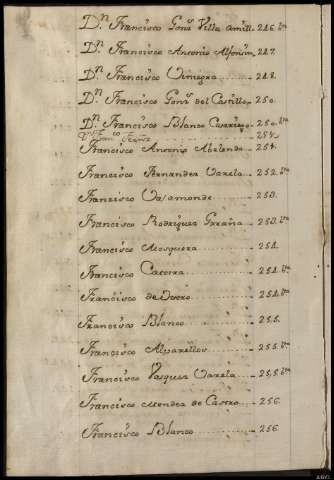 Dn Francisco Gonz Villa amill.. 246. bta
Dn Francisco Antonio Alfonsin.. 247.
Dn Francisco Vimegra .... 248.
Dn Francisco Gonz del Castillo.. 250.
Dn Francisco Blanco .. 250. bta
254.
Francisco Antonio Abelenda .. 254.
Francisco Fernandez Varela .. 252. bta
Francisco Vaamonde ........ 253.
Francisco Rodriguez Graña .. 253. bta
Francisco Mosquera ........ 254.
Francisco ........ 254. bta
Francisco de Castro ........ 254. bta
Francisco Blanco ........ 255.
Francisco Alvarellos ........ 255. bta
Francisco Vasquez Varela .... 255. bta
Francisco Mendez de Castro .. 256.
Francisco Blanco ........ 256.